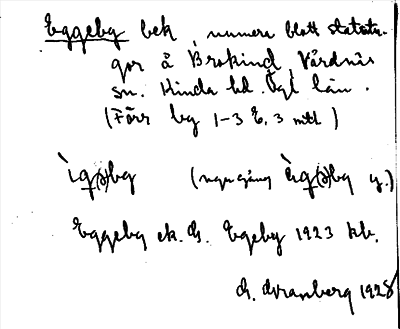 Eggeby bek, numera blott statsta-
gor å Brokind, Vårdnäs
sn. Kinda hd. Ögl län.
(Förr by 1-3 E, 3 mtl)
ìg(ə)by (någon gång ìg(ə)by y.)
Eggeby ek. G. Egeby 1923 kb.
G. Granberg 1928